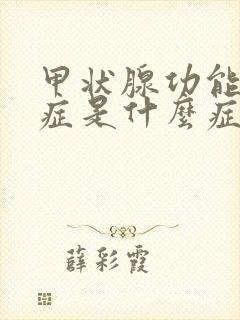 甲状腺功能
症是什麼症
薛彩霞